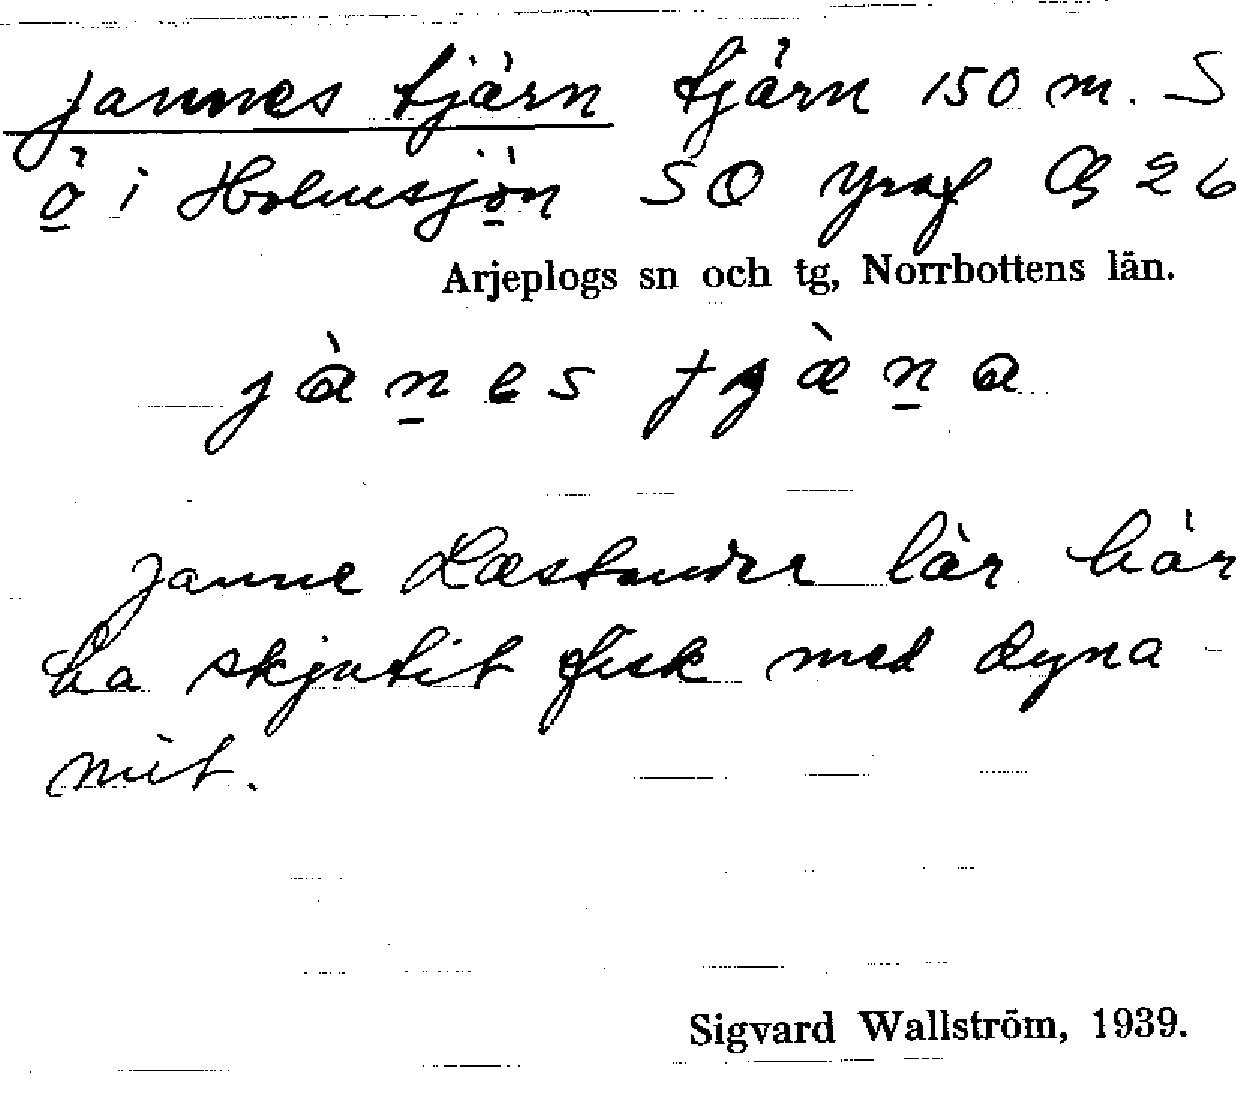 Jannes tjärn tjärn 150 m. S
ö i Holmsjön SO Yraf Cg 26
Arjeplogs sn och tg, Norrbottens län.
jànes tjæ̀na
Janne Læstander lär här
ha skjutit fisk med dyna-
mit.
Sigvard Wallström, 1939.